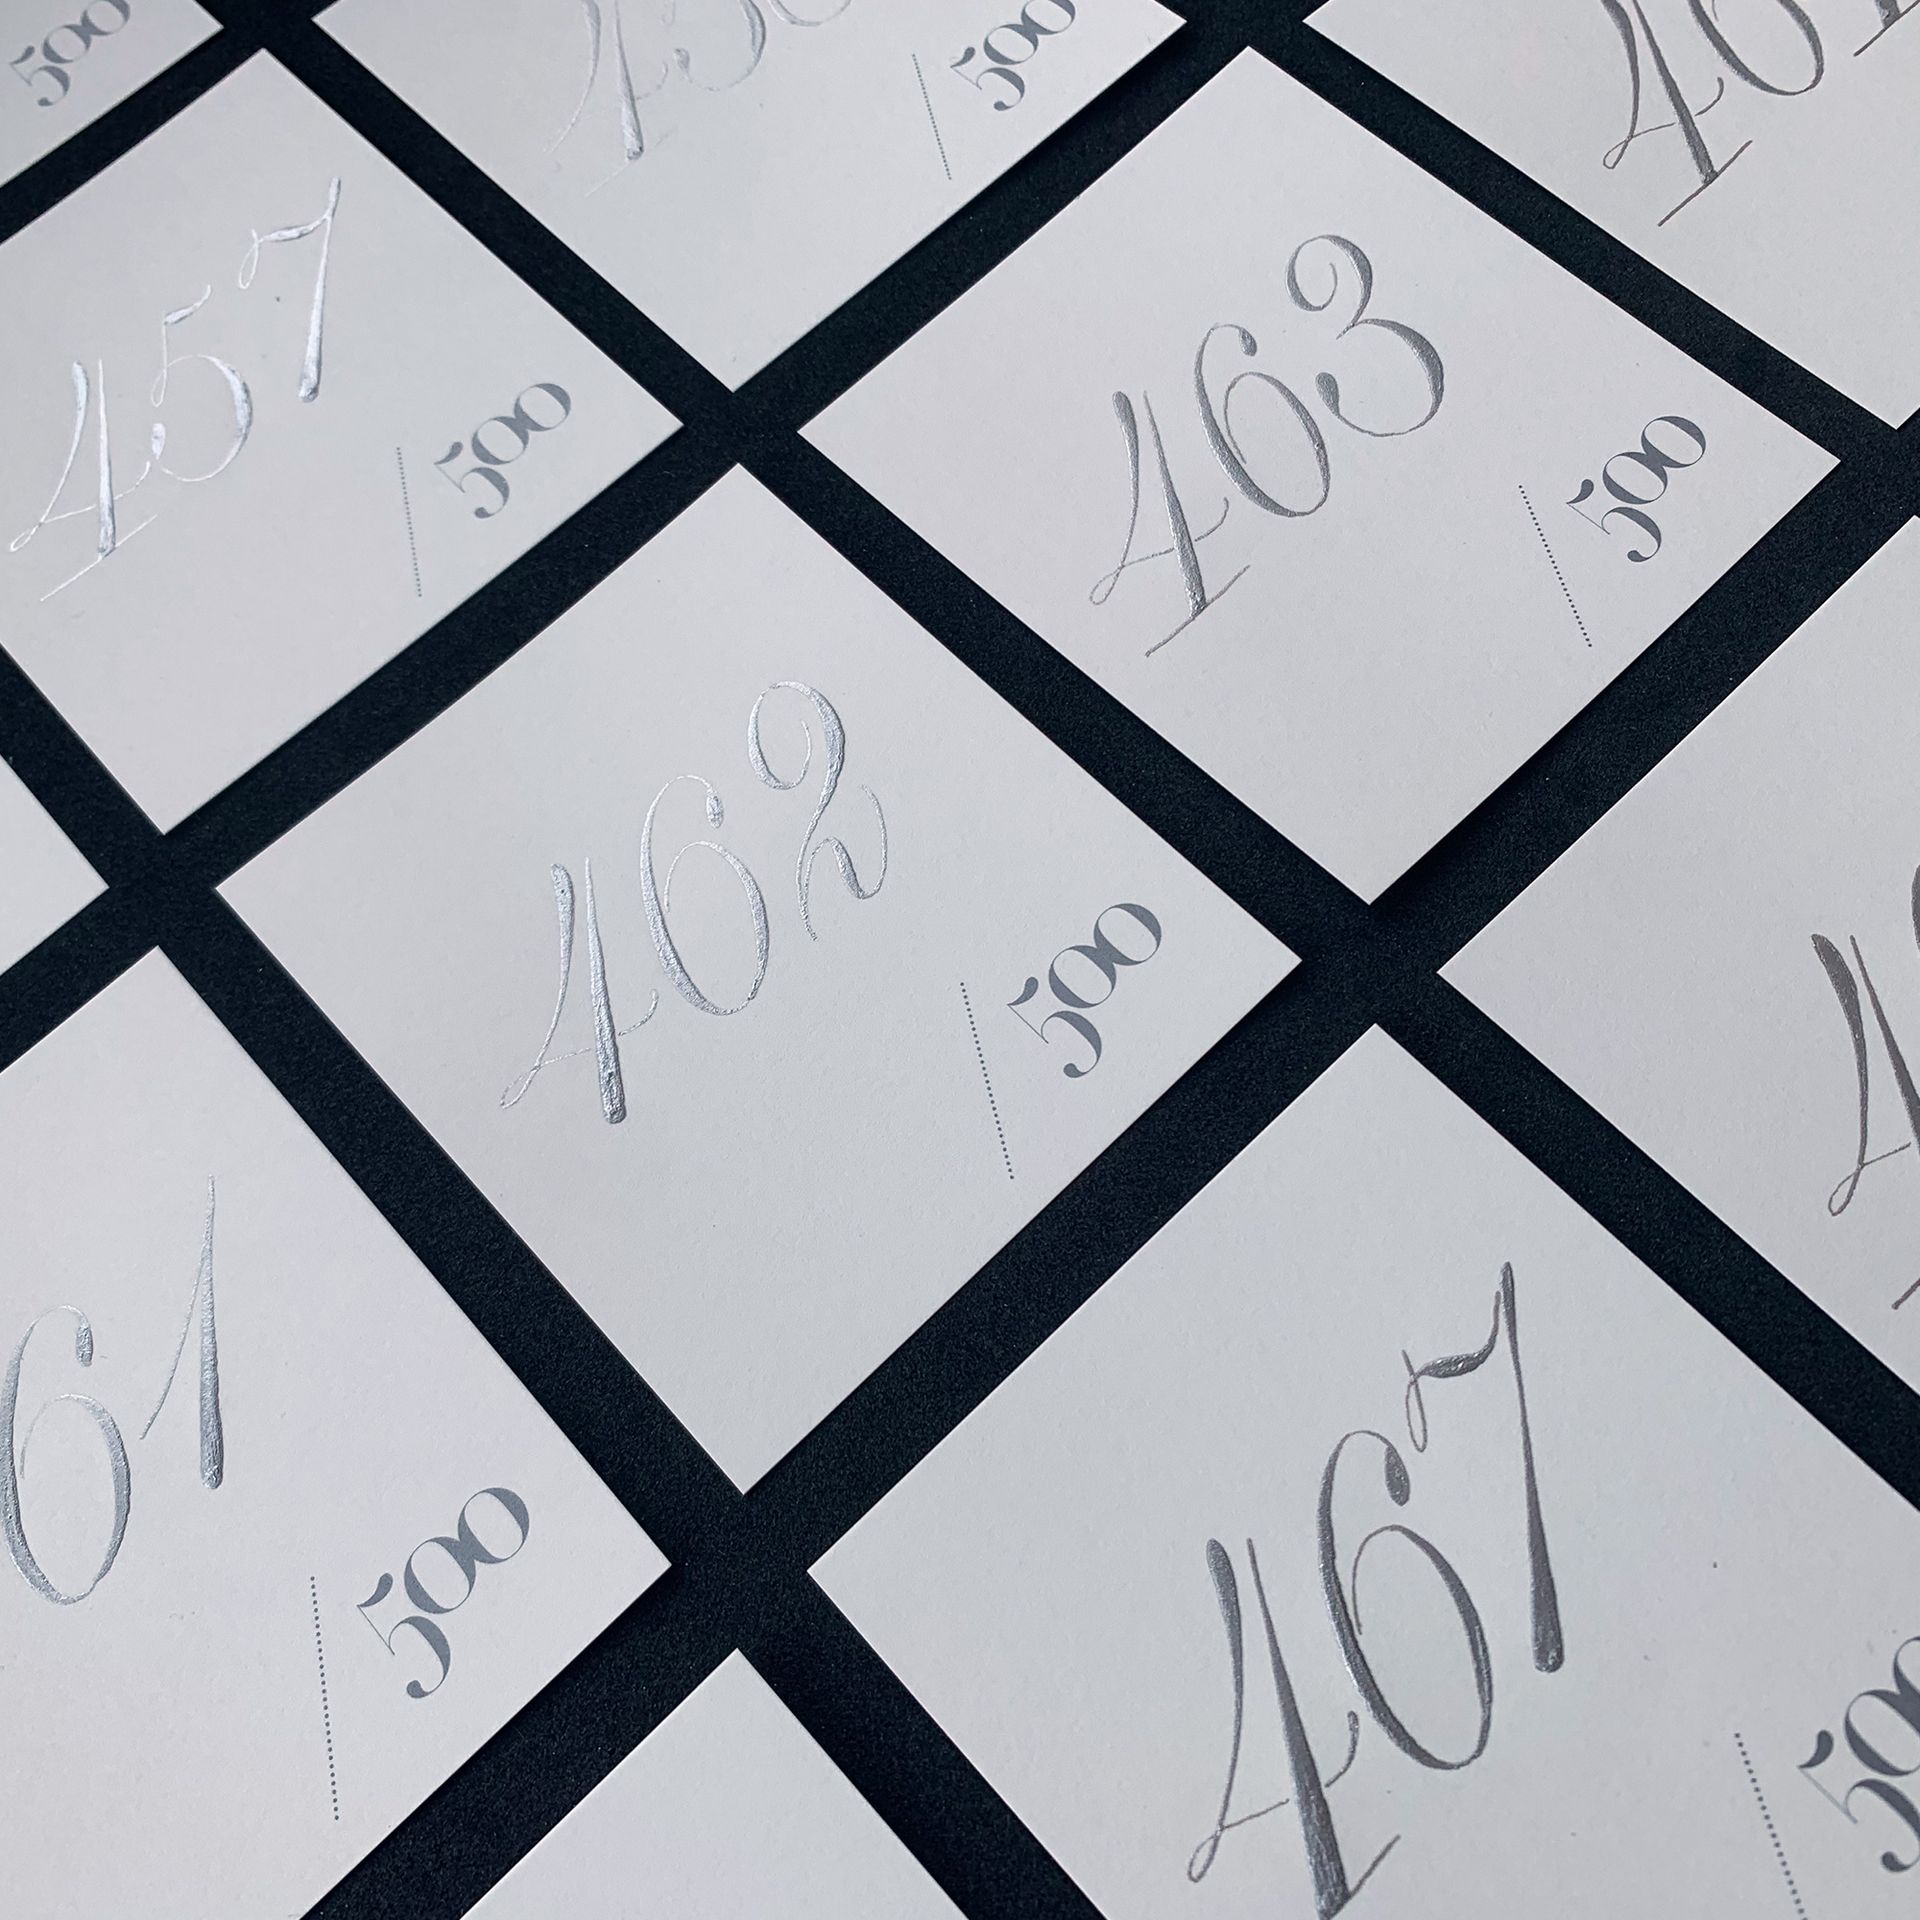 500
/ 500
457
/ 500
463
/ 500
462
/ 500
61
/ 500
467
/ 500